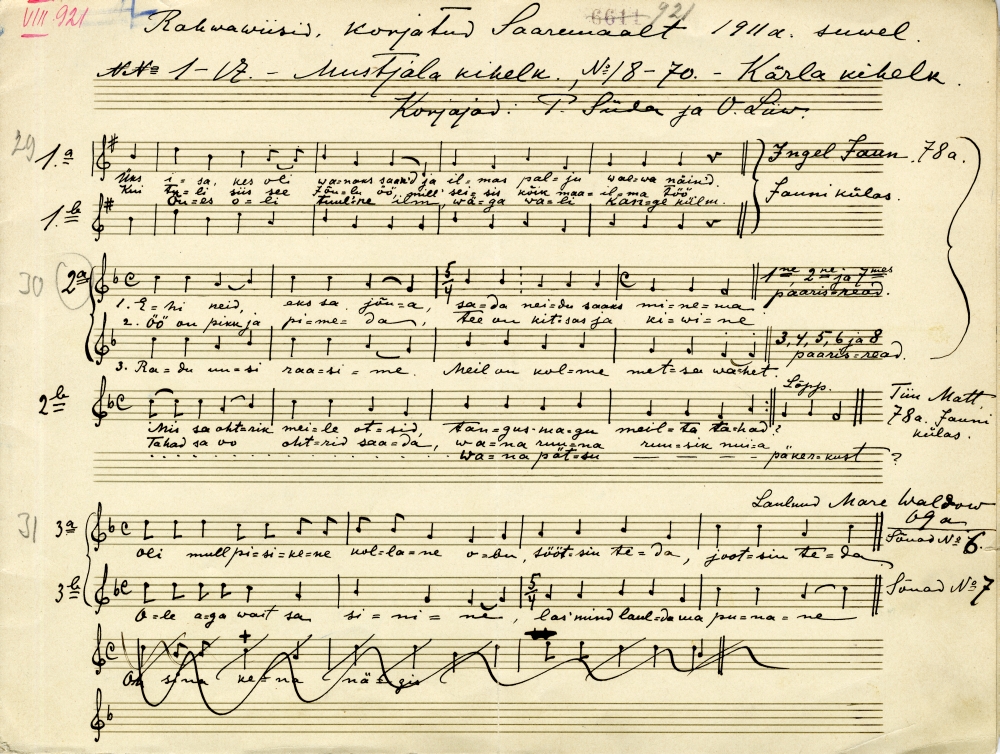 VIII. 921
6611 921
Rahwawiisid, korjatud Saaremaalt 1911a. suwel.
NNo 1-17. - Mustjala kihelk., No 18-70. - Kärla kihelk.
Korjajad: P. Süda ja O. Liiw.
29 1.a
Ingel Jaun 78a.
Üks i=sa, kes oli wanaks saand ja il=mas pal=ju walwa näind.
Kui tu=li siis see jõu=lu öö, mill' sei=sis kõik maa=il=ma töö
Jauni külas.
Õu=es o=li tuuline ilm, wä=ga wa=li kange külm.
1.b
30 2a
1ne 2ne ja 7mes
paaris=read.
1. E=hi neid, eks sa jõu=a, sa=da nei=du saaks mi=ne=ma
2. öö on pikk ja pi=me=da, tee on kit=sas ja ki=wi=ne
3, 4, 5, 6 ja 8
paaris=read.
3. Ra=du uu=si raa=si=me. Meil on kol=me met=sa wahet.
2b
Lõpp.
Tiin Matt
78a. Jauni
külas.
Mis sa oht=rik mei=le ot=sid, kan=gus=ma=gu meil=ta tahad?
Tahad sa oo oht=rid saa=da, wa=na ruu=na ruu=sik nui=a
wa=na pät=su päker=kust ?
Laulnud Mare Waldow
69a
31 3a
Sõnad No 6.
Oli mull pi=si=ke=ne kol=la=ne o=bu, sööt=sin te=da, joot=sin te=da
3b
Sõnad No 7
O=le a=ga wait sa si=ni=ne, las mind laul=da ma pu=na=ne
sina ke=na nä=gis